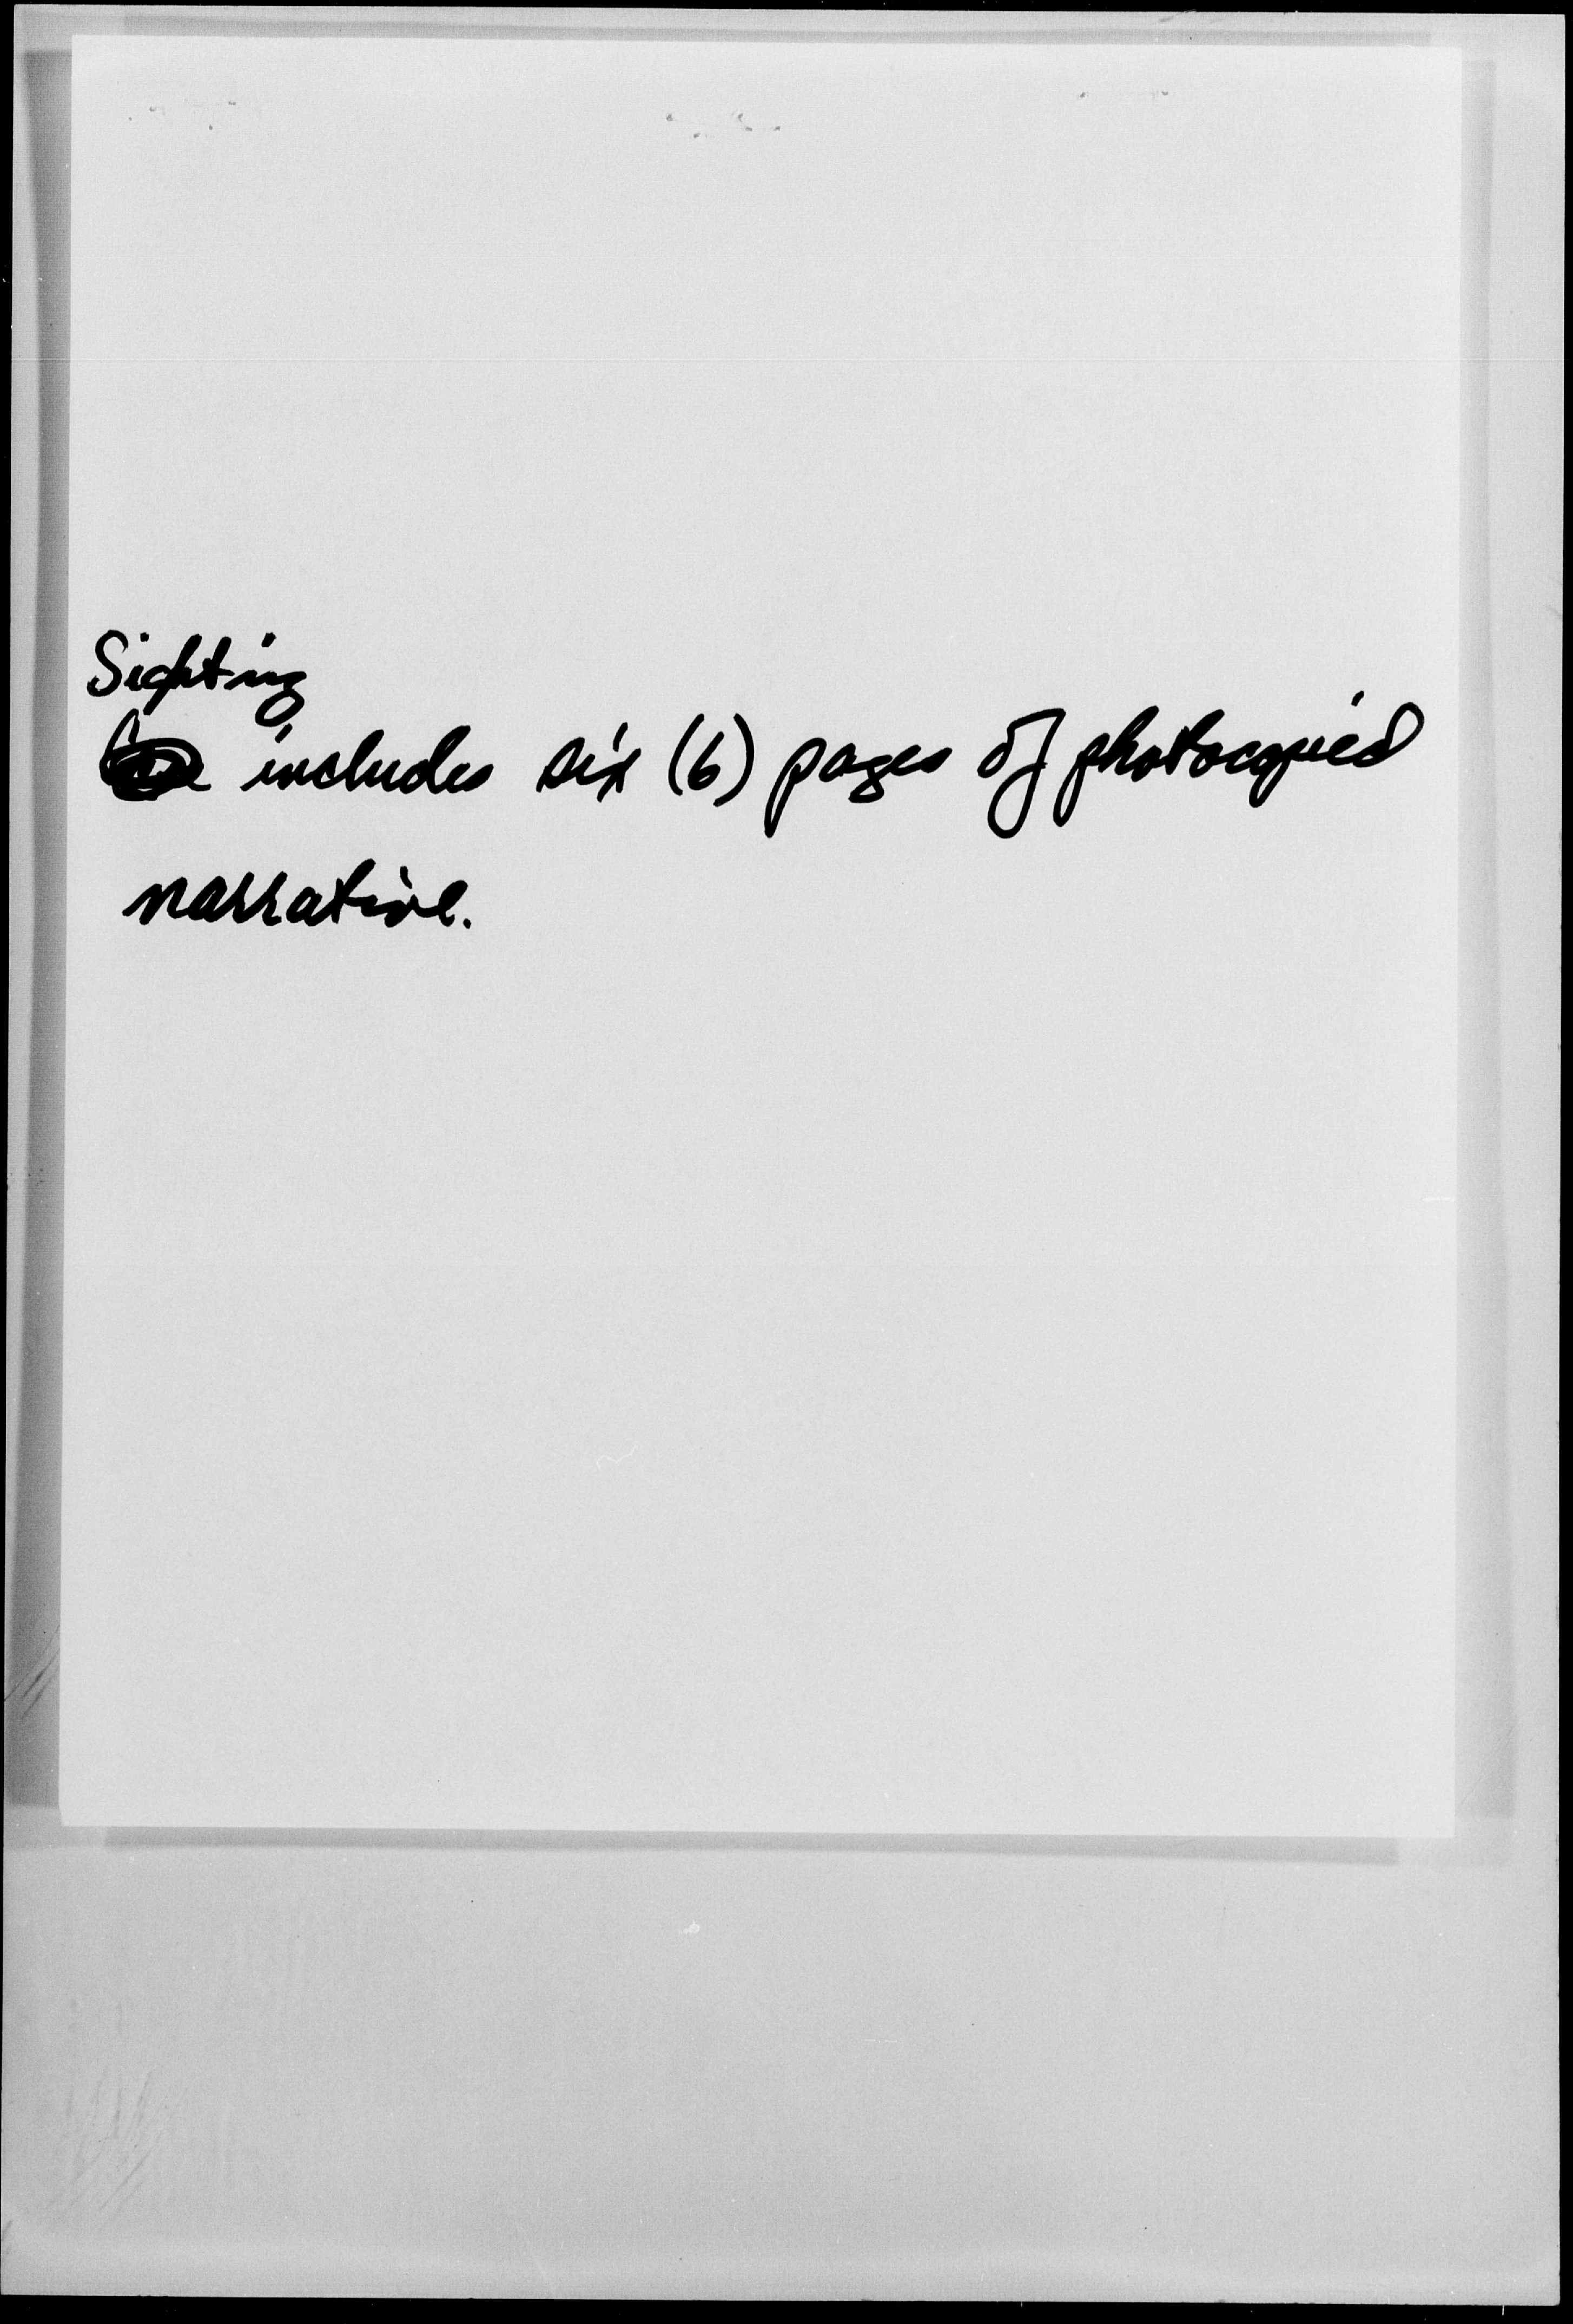 Sighting
includes six (6) pages of photocopied
narrative.